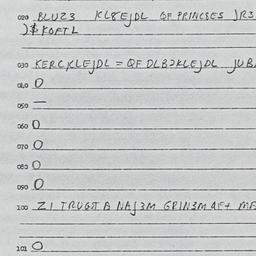 020 BLUZ3 KL8EJDL QF PRINCSES JR3
)$ KOFTL
030 KERCKLEJDL = QF DLB2KLEJDL JUB
040 O
050 —
060 O
070 O
080 O
090 O
100 ZI TRUGST B NAJ3M GRIN3M QF+ MA
101 O